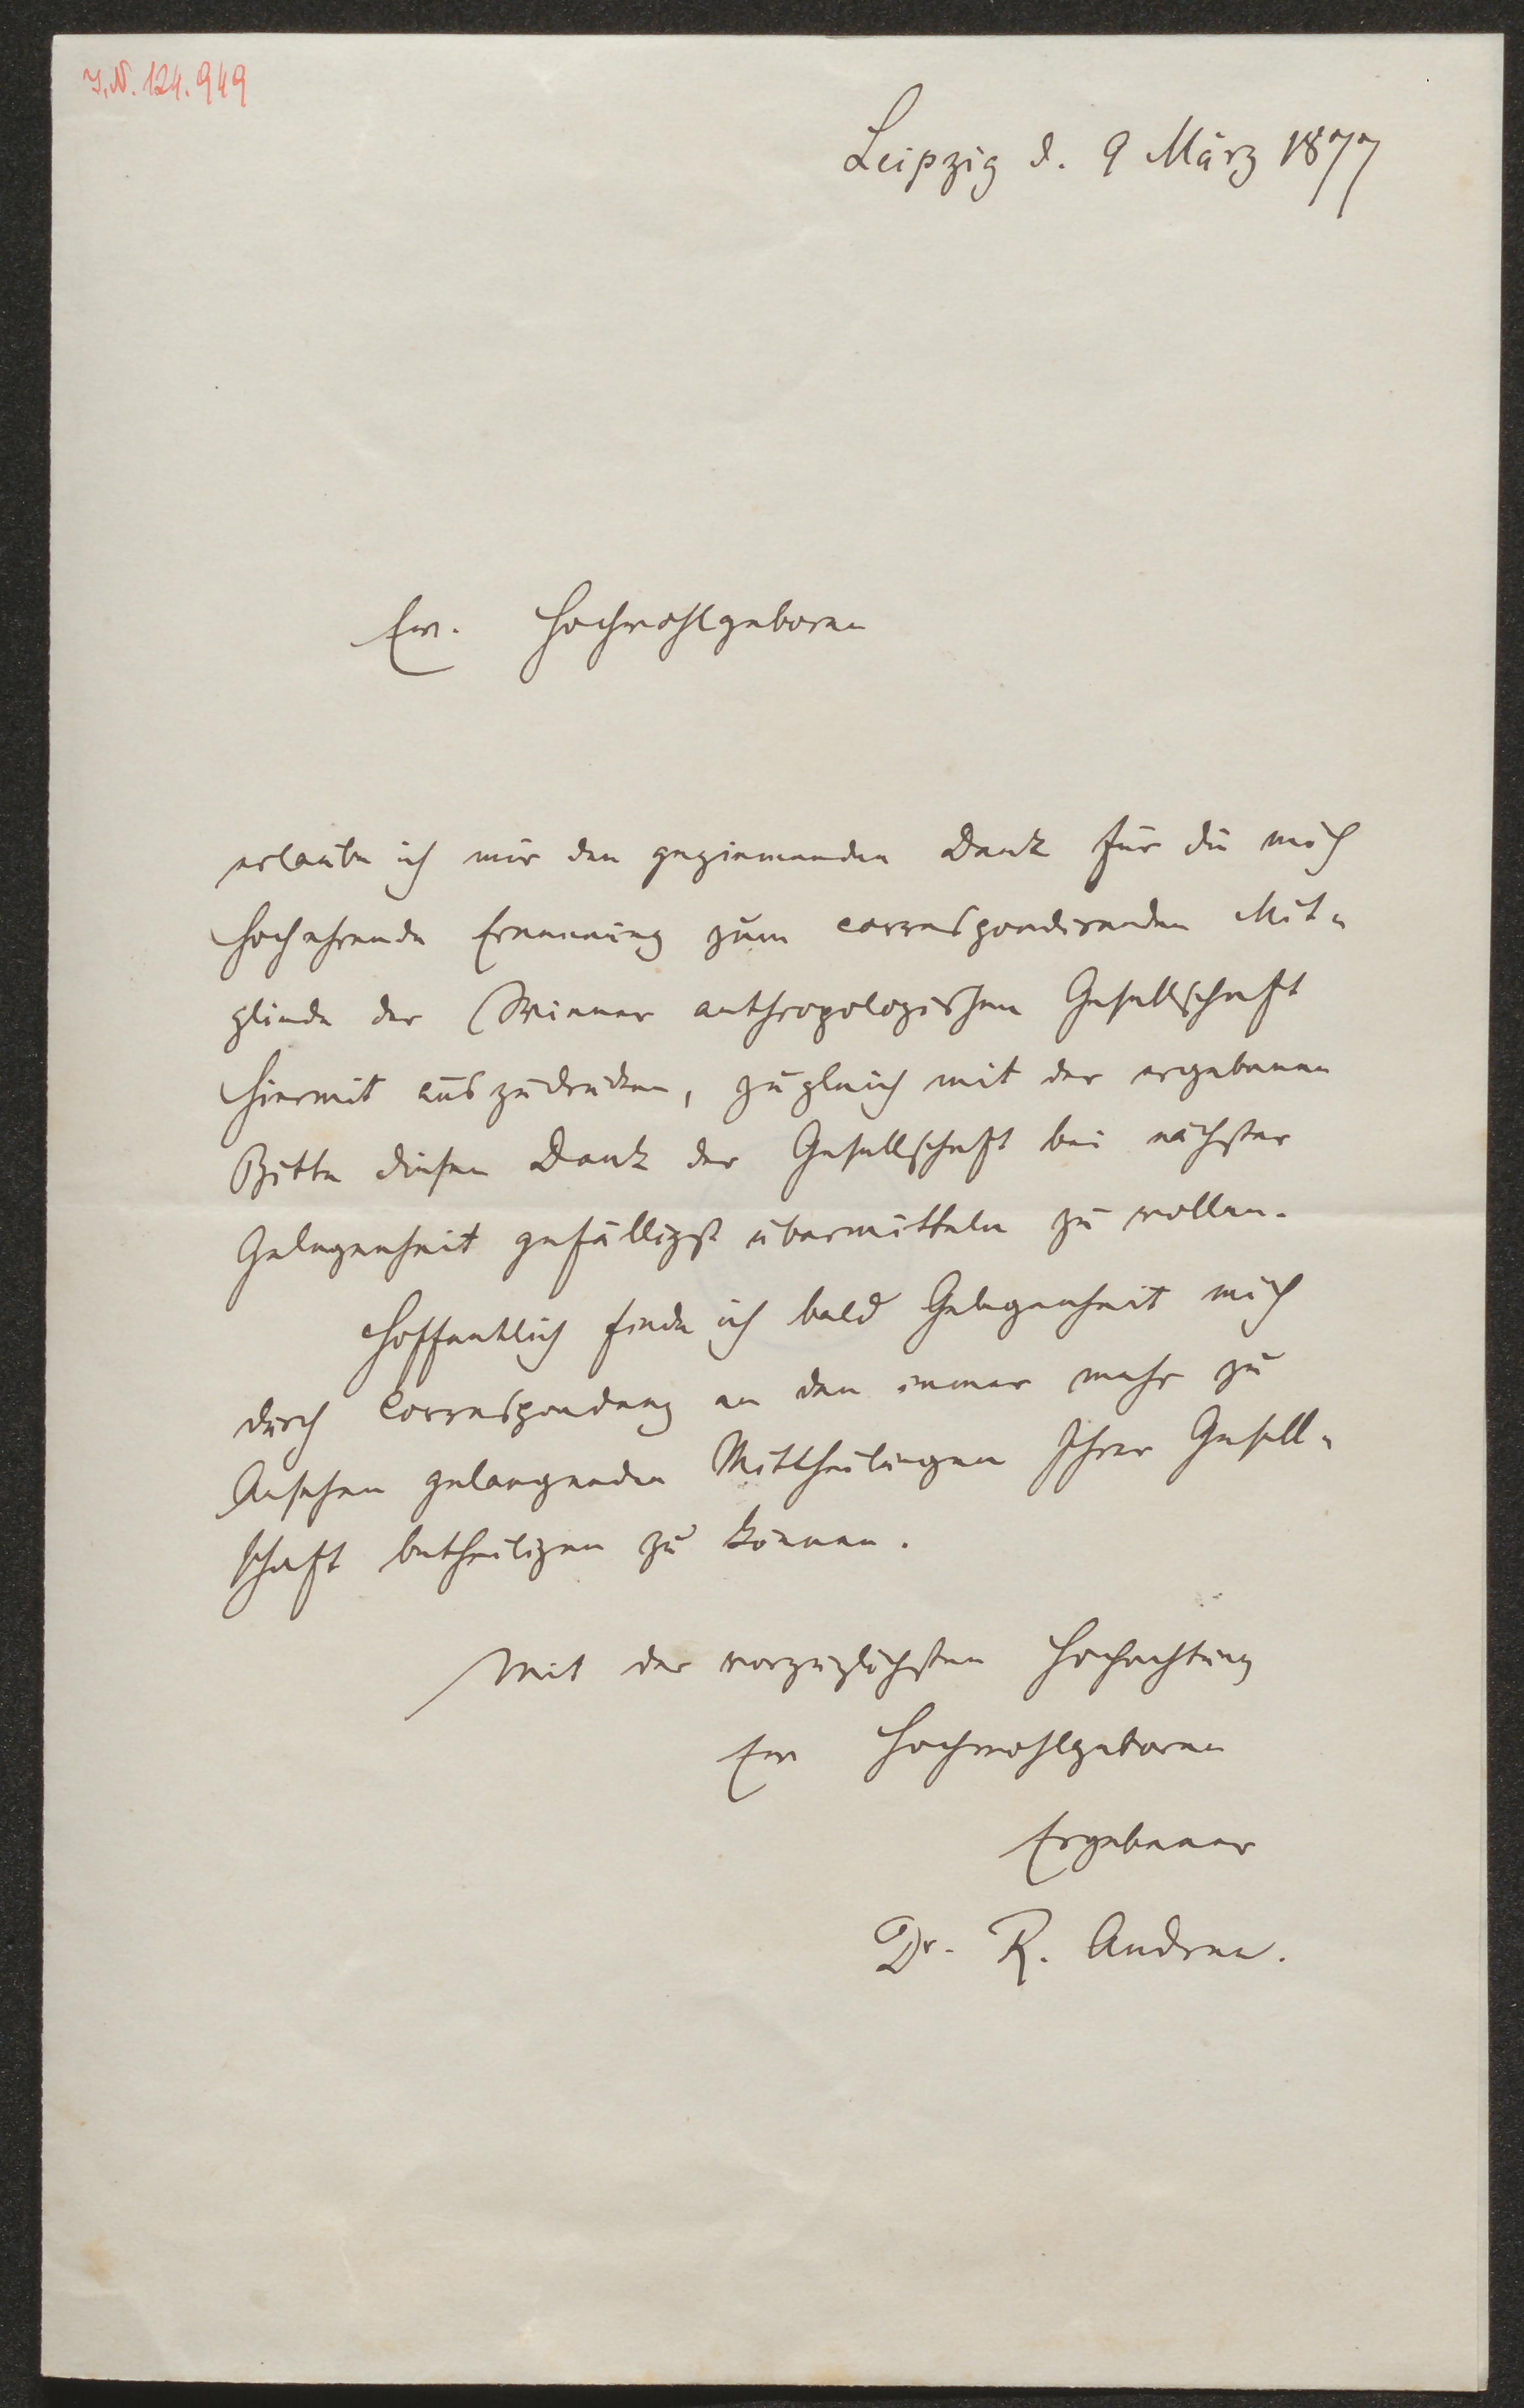 I.N. 124.949
Leipzig d. 9 März 1877
Ew. Hochwohlgeboren
erlaube ich mir den geziemenden Dank für die mich
hochehrende Ernennung zum correspondirenden Mit-
gliede der Wiener anthropologischen Gesellschaft
hiermit auszudrücken, zugleich mit der ergebenen
Bitte diesen Dank der Gesellschaft bei nächster
Gelegenheit gefälligst übermitteln zu wollen.
Hoffentlich finde ich bald Gelegenheit mich
durch Correspondenz an den immer mehr zu
Ansehen gelangenden Mittheilungen Ihrer Gesell-
schaft betheiligen zu können.
Mit der vorzüglichsten Hochachtung
Ew Hochwohlgeboren
Ergebener
Dr. R. Andree.